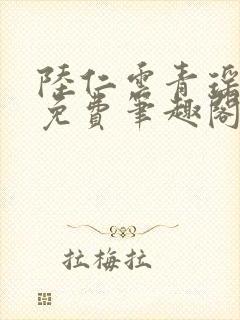 陸仁雲青瑶
免費筆趣閣
拉梅拉